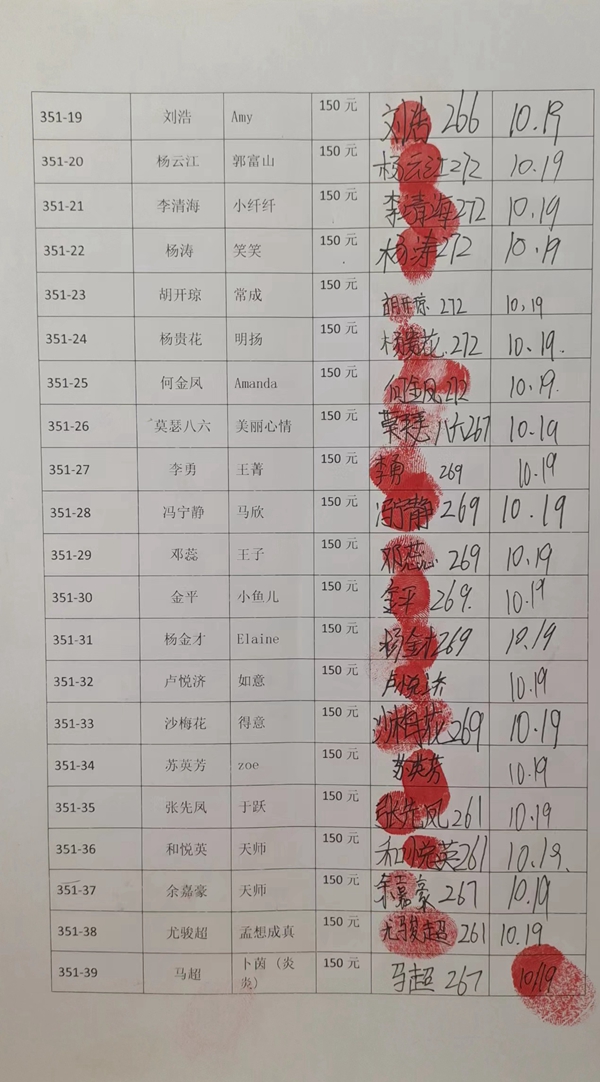 351-19 刘浩 Amy 150 元 刘浩 266 10.19
351-20 杨云江 郭富山 150 元 杨云江272 10.19
351-21 李清海 小纤纤 150 元 李清海272 10.19
351-22 杨涛 笑笑 150 元 杨涛272 10.19
351-23 胡开琼 常成 150 元 胡开琼 272 10.19
351-24 杨贵花 明扬 150 元 杨贵花.272 10.19.
351-25 何金凤 Amanda 150 元 何金凤272 10.19.
351-26 莫瑟八六 美丽心情 150 元 八六267 10.19
351-27 李勇 王菁 150 元 李勇 269 10.19
351-28 冯宁静 马欣 150 元 冯宁静 269 10.19
351-29 邓蕊 王子 150 元 邓蕊 269 10.19
351-30 金平 小鱼儿 150 元 金平 269. 10.19
351-31 杨金才 Elaine 150 元 杨金才269 10.19
351-32 卢悦济 如意 150 元 卢悦济 10.19
351-33 沙梅花 得意 150 元 沙梅花269 10.19
351-34 苏英芳 zoe 150 元 苏英芳 10.19
351-35 张先凤 于跃 150 元 张先凤 261 10.19
351-36 和悦英 天师 150 元 和悦英261 10.19.
351-37 余嘉豪 天师 150 元 余嘉豪 267 10.19
351-38 尤骏超 孟想成真 150 元 尤骏超 261 10.19
351-39 马超 卜茵（炎 150 元 马超 267 10.19
炎）